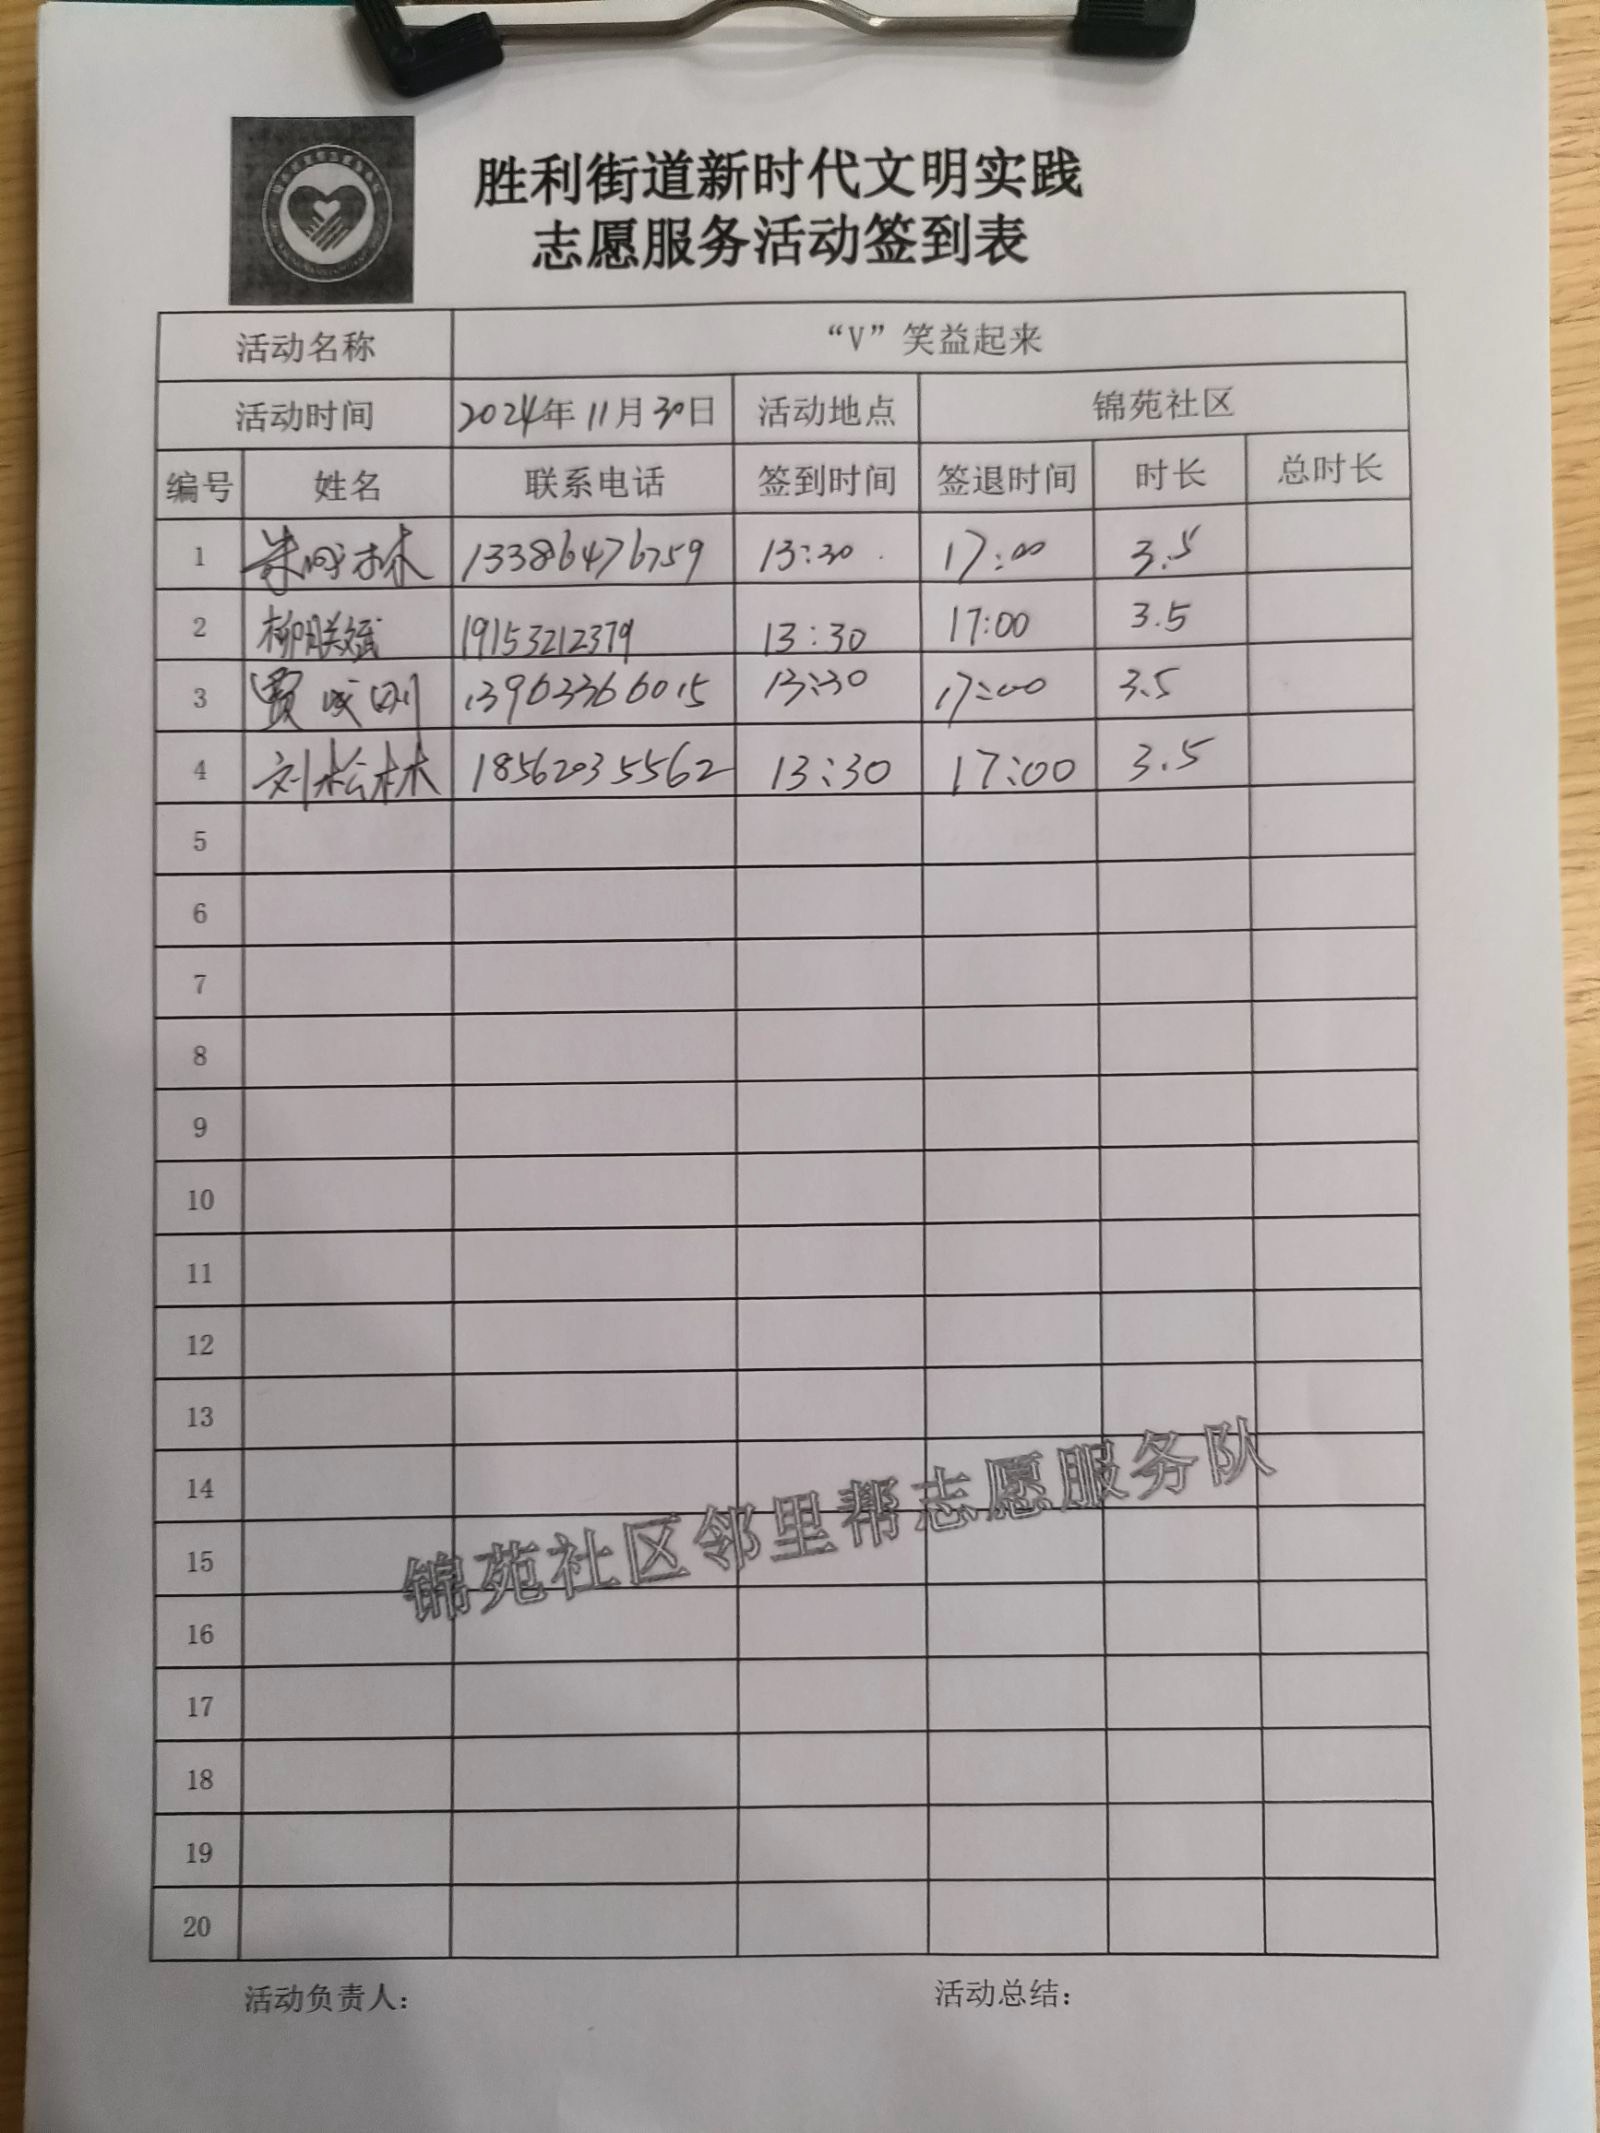 胜利街道新时代文明实践
志愿服务活动签到表
活动名称 “V”笑益起来
活动时间 2024年 11月 30日 活动地点 锦苑社区
编号 姓名 联系电话 签到时间 签退时间 时长 总时长
1 13386476759 13:30 17:00 3.5
2 19153212379 13:30 17:00 3.5
3 13963366015 13:30 17:00 3.5
4 刘松林 18562035562 13:30 17:00 3.5
5
6
7
8
9
10
11
12
13
14
15
16
17
18
19
20
锦苑社区邻里帮志愿服务队
活动负责人： 活动总结：